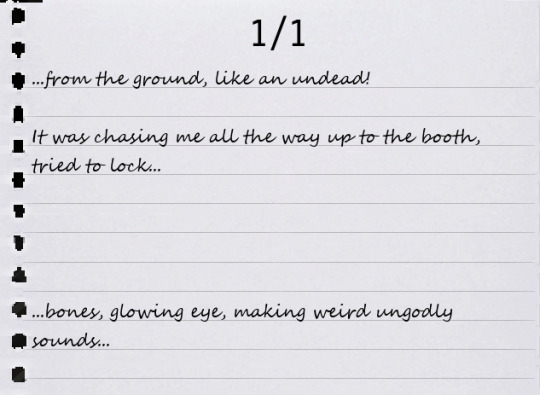 1/1
...from the ground, like an undead!
It was chasing me all the way up to the booth,
tried to lock...
...bones, glowing eye, making weird ungodly
sounds...